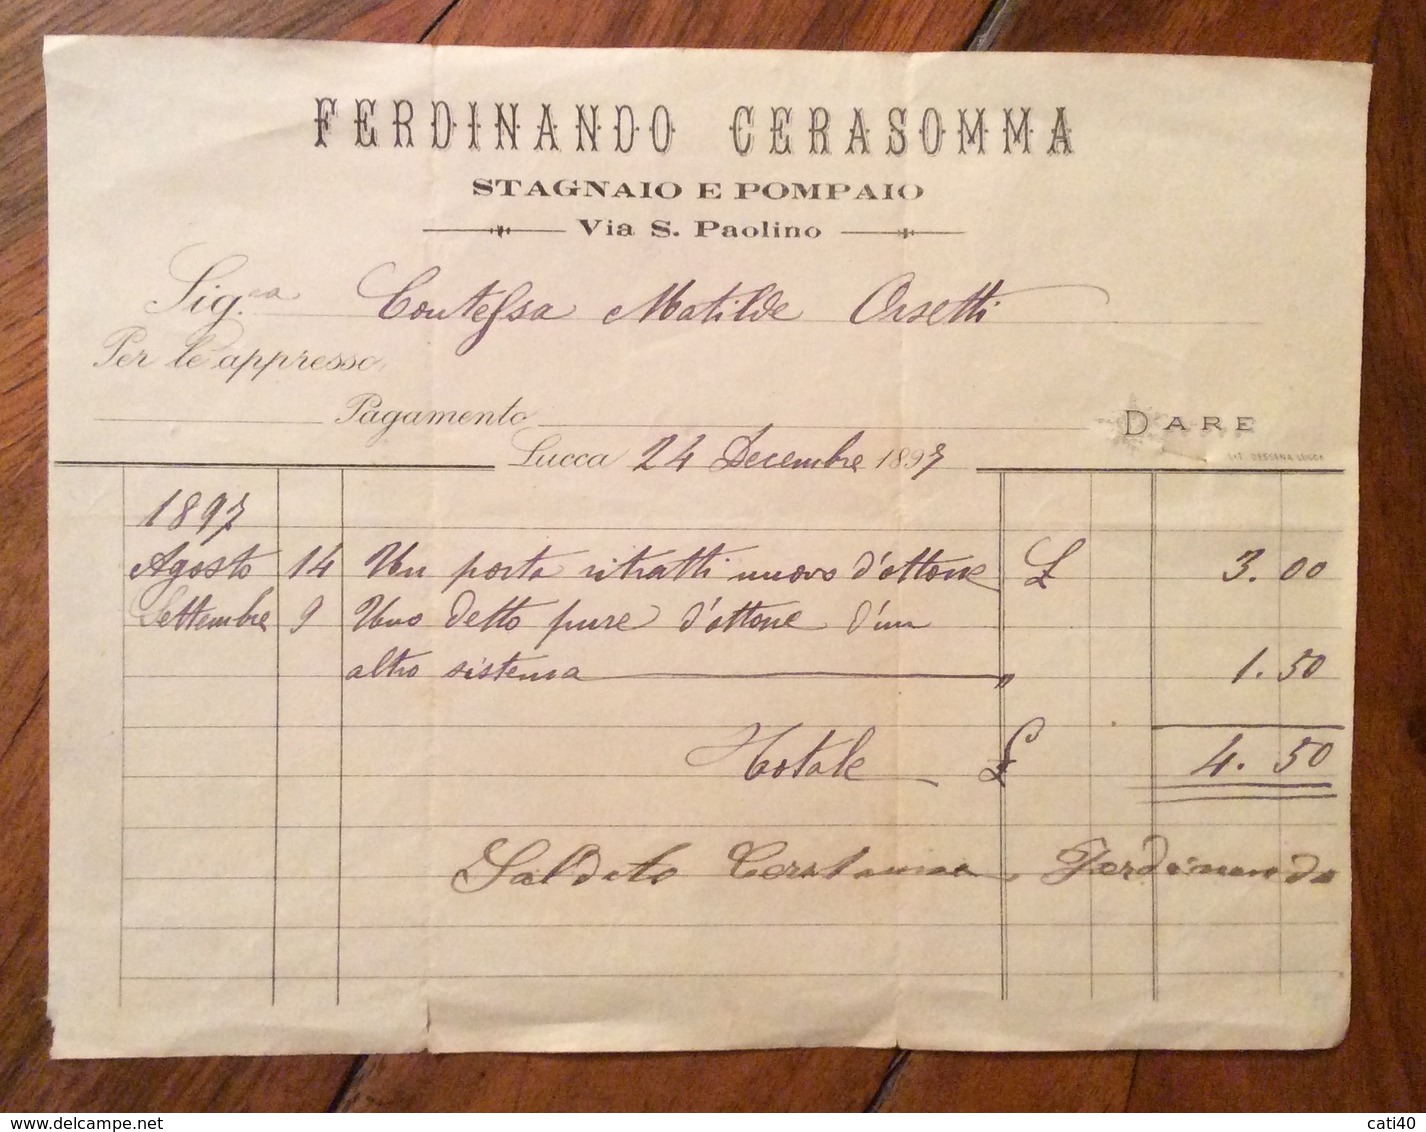 FERDINANDO CERASOMMA
STAGNAIO E POMPAIO
Via S. Paolino
Sig.ra Contessa Matilde Orsetti
Per le appresso
Pagamento DARE
Lucca 24 Decembre 1897
LIT. DESSENA LUCCA
1897
Agosto 14 Un porta ritratti nuovo d'ottone £ 3.00
Settembre 9 Uno detto pure d'ottone d'un
altro sistema " 1.50
Totale £ 4.50
Saldato Cerasomma Ferdinando
www.delcampe.net
cati40